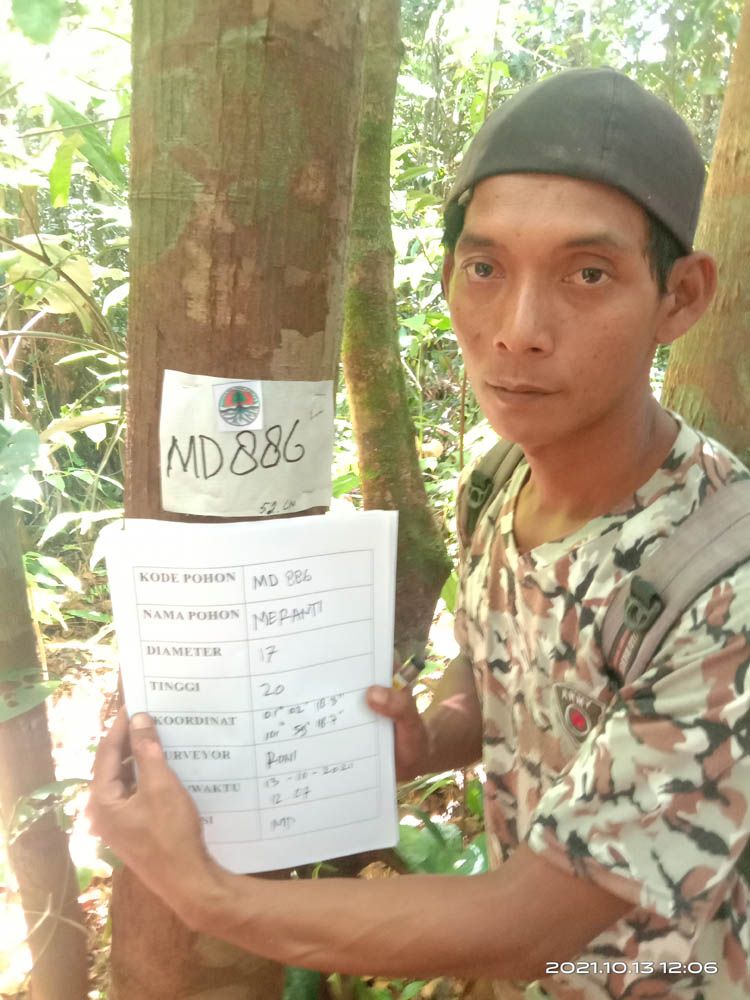 MD 886
52 CM
KODE POHON MD 886
NAMA POHON MERANTI
DIAMETER 17
TINGGI 20
KOORDINAT 01° 02'
101° 59'
URVEYOR RONI
/WAKTU 13 - 10 - 2021
12 07
SI MD
ARMY
2021.10.13 12:06